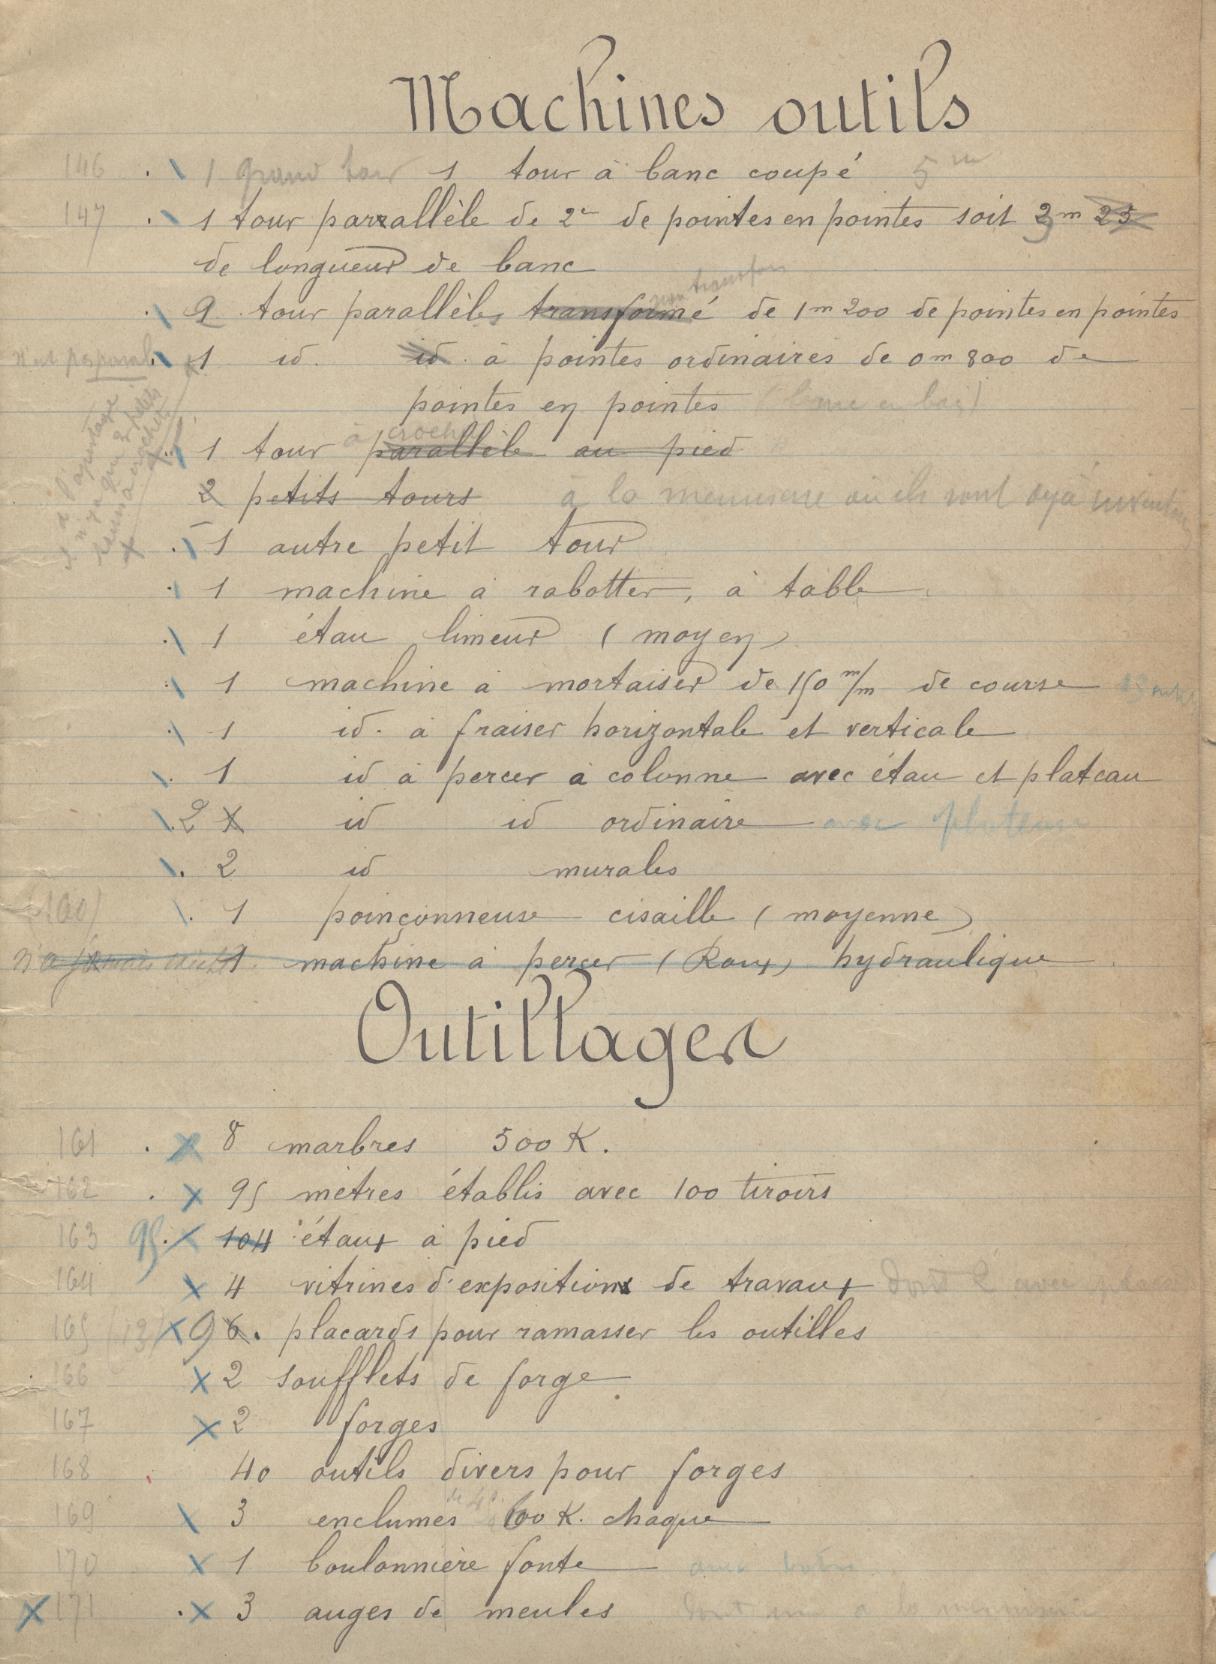 Machines outils
146 1 grand tour 1 tour à banc coupé 5 m
147 1 tour parrallèle de 2m de pointes en pointes soit 3m 25
de longueur de banc
non transfor
2 tour parallèles transformé de 1m200 de pointes en pointes
1 id. id. à pointes ordinaires de 0m800 de
pointes en pointes
1 tour à croch parallèle au pied
2 petits tours à la menuiserie où ils sont déjà
1 autre petit tour
1 machine à rabotter, à table
1 étau limeur (moyen)
1 machine à mortaiser de 150 m/m de course
1 id. à fraiser horizontale et verticale
1 id à percer à colonne avec étau et plateau
2 id id ordinaire avec plateau
2 id murales
(100) 1 poinçonneuse cisaille (moyenne)
n'a jamais 1 machine à percer (Roux) hydraulique
Outillages
161 8 marbres 500 K.
162 95 mètres établis avec 100 tiroirs
163 95 104 étaux à pied
164 4 vitrines d'expositions de travaux dont 2 avec
165 (13) 9 6. placards pour ramasser les outilles
166 2 soufflets de forge
167 2 forges
168 40 outils divers pour forges
169 3 enclumes 600 K. chaque
170 1 boulonnière fonte
171 3 auges de meules dont un a la menuiserie